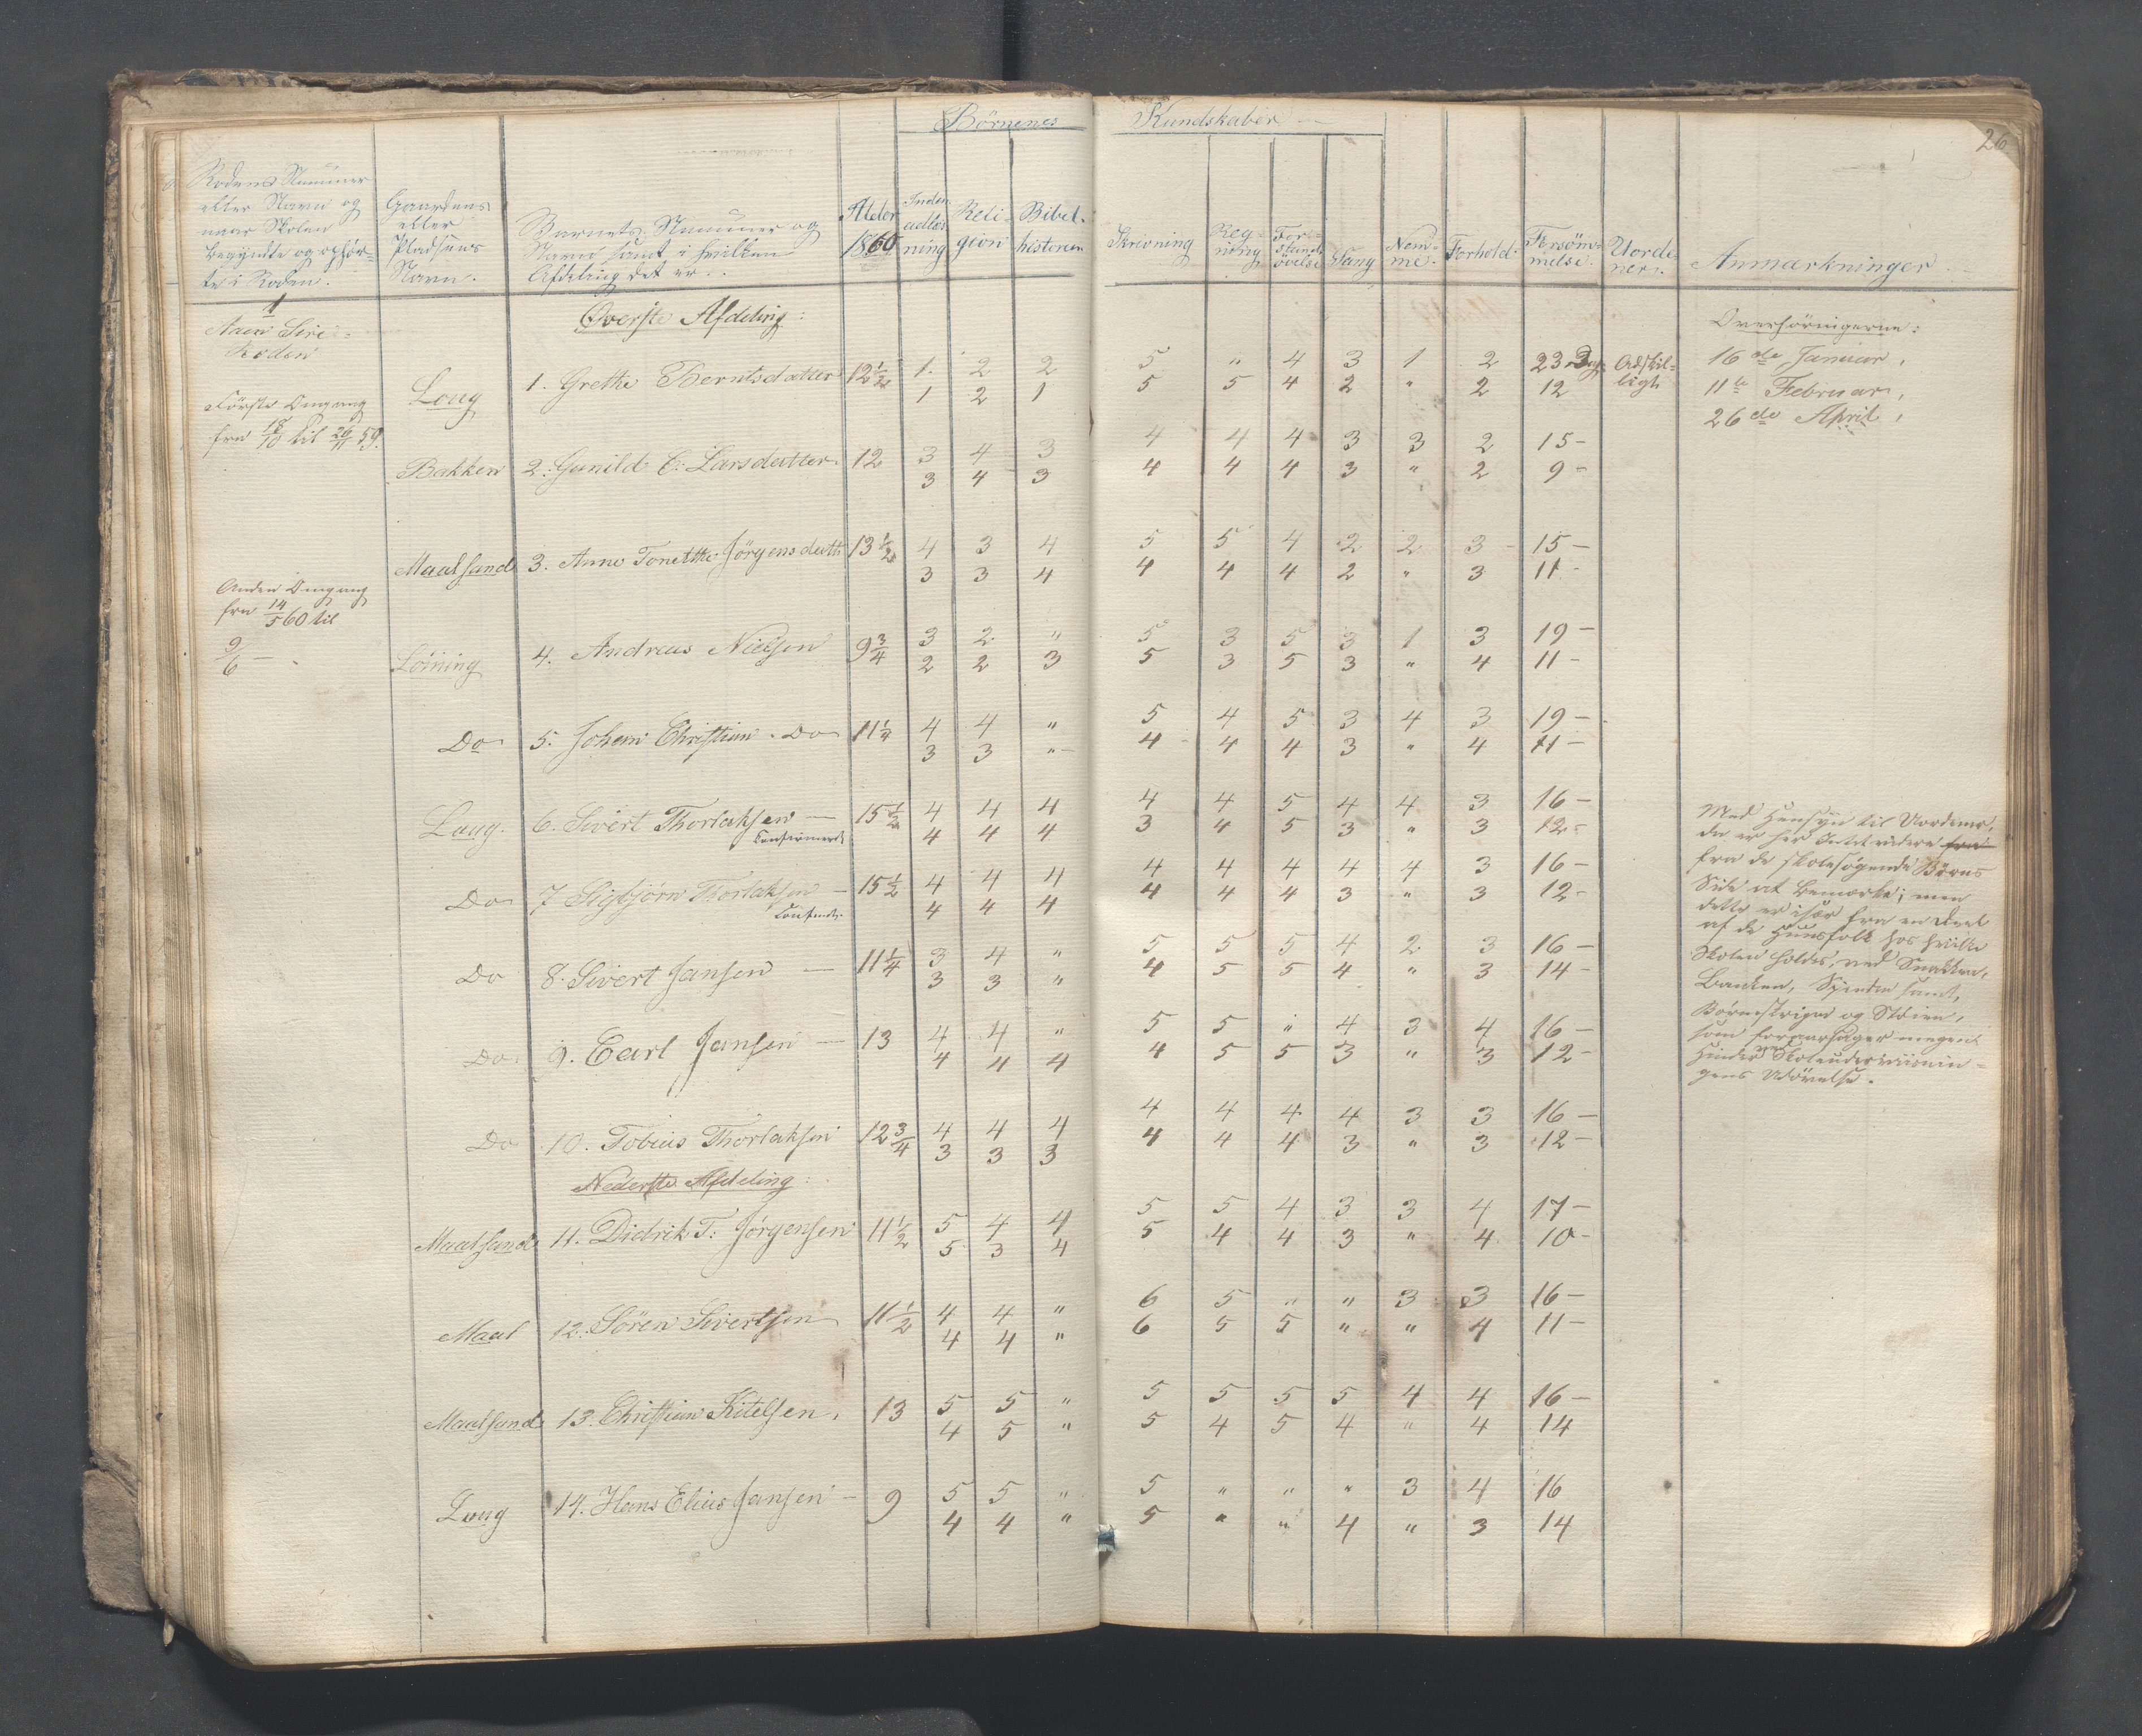 Börnenes Kundskaber
26
Rodens Nummer
eller Navn og
naar Skolen
begyndte og ophör-
te i Roden.
Gaardens
eller
Pladsens
Navn.
Barnets Nummer og
Navn samt i hvilken
Afdeling det er.
Alder
1860
Inden
adlæs
ning
Reli
gion
Bibel-
historien
Skrivning
Reg-
ning
For-
stands
övelse
Sang
Nem-
me.
Forhold.
Forsöm-
melse.
Uorde
ner.
Anmærkninger
1
Aaen Sire
Roden
Överste Afdeling:
Overhöringerne:
16de Januar,
11te Februar,
26de April,
Förste Omgang
fra 18/10 til 26/11 59.
Loug 1. Grethe Berntsdatter 12 1/2 1. 2 2 5 " 4 3 1 2 23 Dage Adskil-
1 2 1 5 5 4 2 " 2 12 ligt
Bakken 2. Gunild C: Larsdatter 12 3 4 3 4 4 4 3 3 2 15 -
3 4 3 4 4 4 3 " 2 9 -
Maalsand 3. Anne Tonethe Jörgensdatt: 13 1/2 4 3 4 5 5 4 2 2 3 15 -
3 3 4 4 4 4 2 " 3 11 -
Anden Omgang
fra 14/5 60 til
9/6 -
Löining 4. Andreas Nielsen 9 3/4 3 2 " 5 3 5 3 1 3 19 -
2 2 3 5 3 5 3 " 4 11 -
Do 5. Johan Christian Do 11 1/4 4 4 " 5 4 5 3 4 3 19 -
3 3 " 4 4 4 3 " 4 11 -
Loug. 6. Sivert Thorlaksen 15 1/2 4 4 4 4 4 5 4 4 3 16 -
Confirmeret 4 4 4 3 4 5 3 " 3 12 -
Do 7 Sigbjörn Thorlaksen - 15 1/2 4 4 4 4 4 4 4 4 3 16 -
4 4 4 4 4 4 3 " 3 12 -
Do 8. Sivert Jansen 11 1/4 3 4 " 5 5 5 4 2 3 16 -
3 3 " 4 5 5 4 " 3 14 -
Do 9. Carl Jansen 13 4 4 " 5 5 " 4 3 4 16 -
4 4 4 4 5 5 3 " 3 12 -
Do 10. Tobias Thorlaksen 12 3/4 4 4 4 4 4 4 4 3 3 16 -
3 3 3 4 4 4 3 " 3 12 -
Med Hensyn til Uordener,
da er her Intet videre fra
fra de skolesögende Börns
Side at bemærke; men
dette er især fra en Deel
af de Huusfolk hos hvilke
Skolen holdes, ved Snakken,
Banken, Spinden samt,
Börneskrigen og Stöien,
som foraarsager megen
Hinder ved Skoleunderviisnin-
gens Udövelse.
Nederste Afdeling:
Maalsand 11. Didrik T: Jörgensen 11 1/2 5 4 4 5 5 4 3 3 4 17 -
5 3 4 5 4 4 3 " 4 10 -
Maal 12. Sören Sivertsen 11 1/2 4 4 " 6 5 " " 3 3 16 -
4 4 " 6 5 5 " " 4 11 -
Maalsand 13. Christian Kitelsen. 13 5 5 " 5 5 5 5 4 4 16 -
4 5 " 5 4 5 4 " 4 14
Loug 14. Hans Elias Jansen - 9 5 5 " 5 " " " 3 4 16
4 4 " 5 " " 4 " 3 14